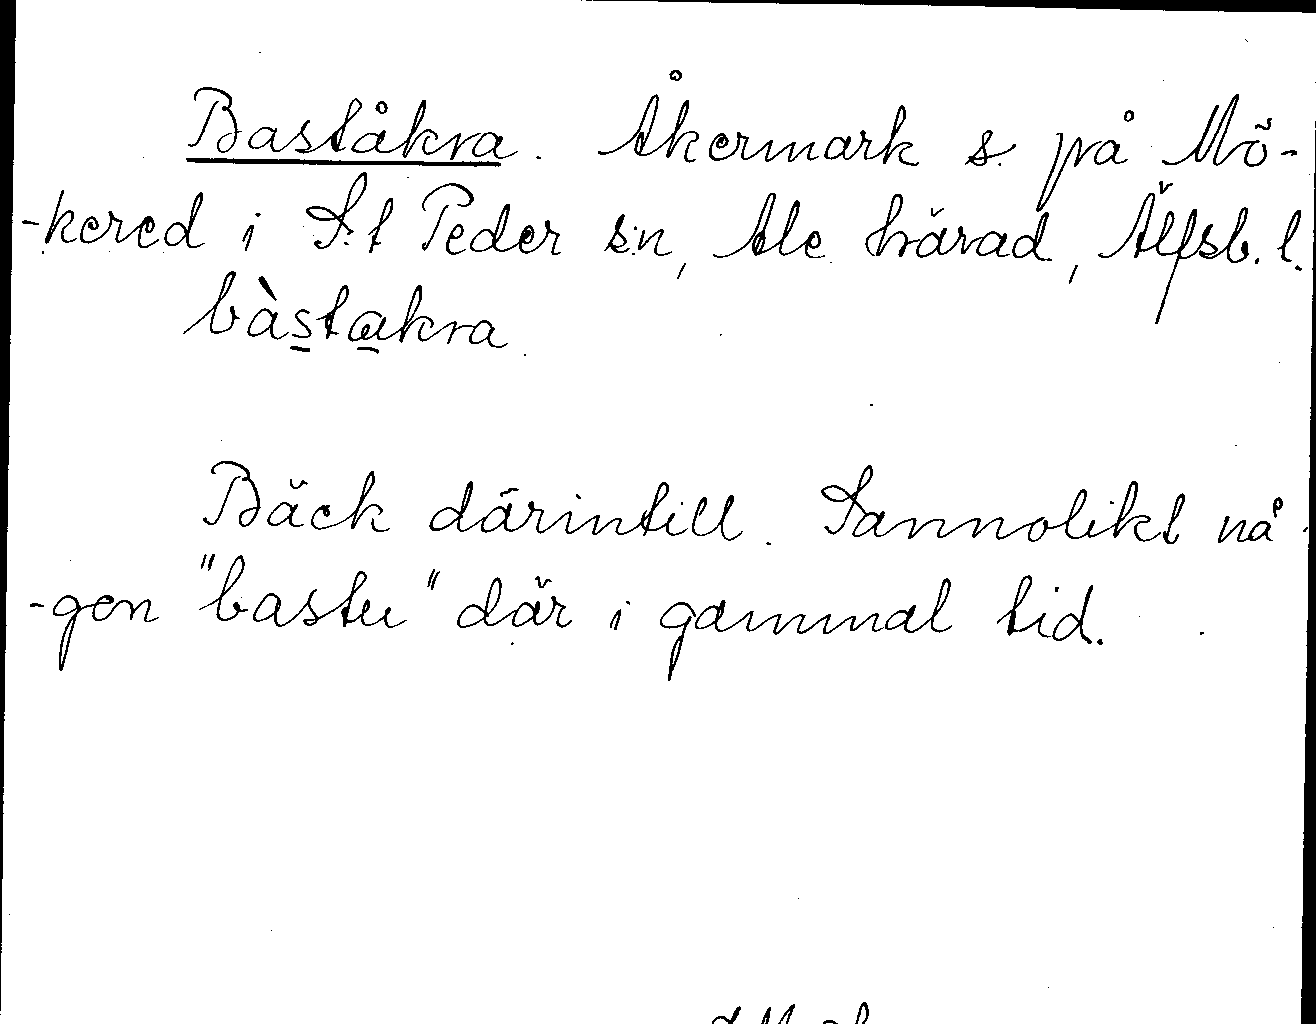 Baståkra. Åkermark s. på Mö-
-kered i S:t Peder s:n, Ale härad, Älfsb. l.
bàstakra
Bäck därintill. Sannolikt nå-
-gon "bastu" där i gammal tid.